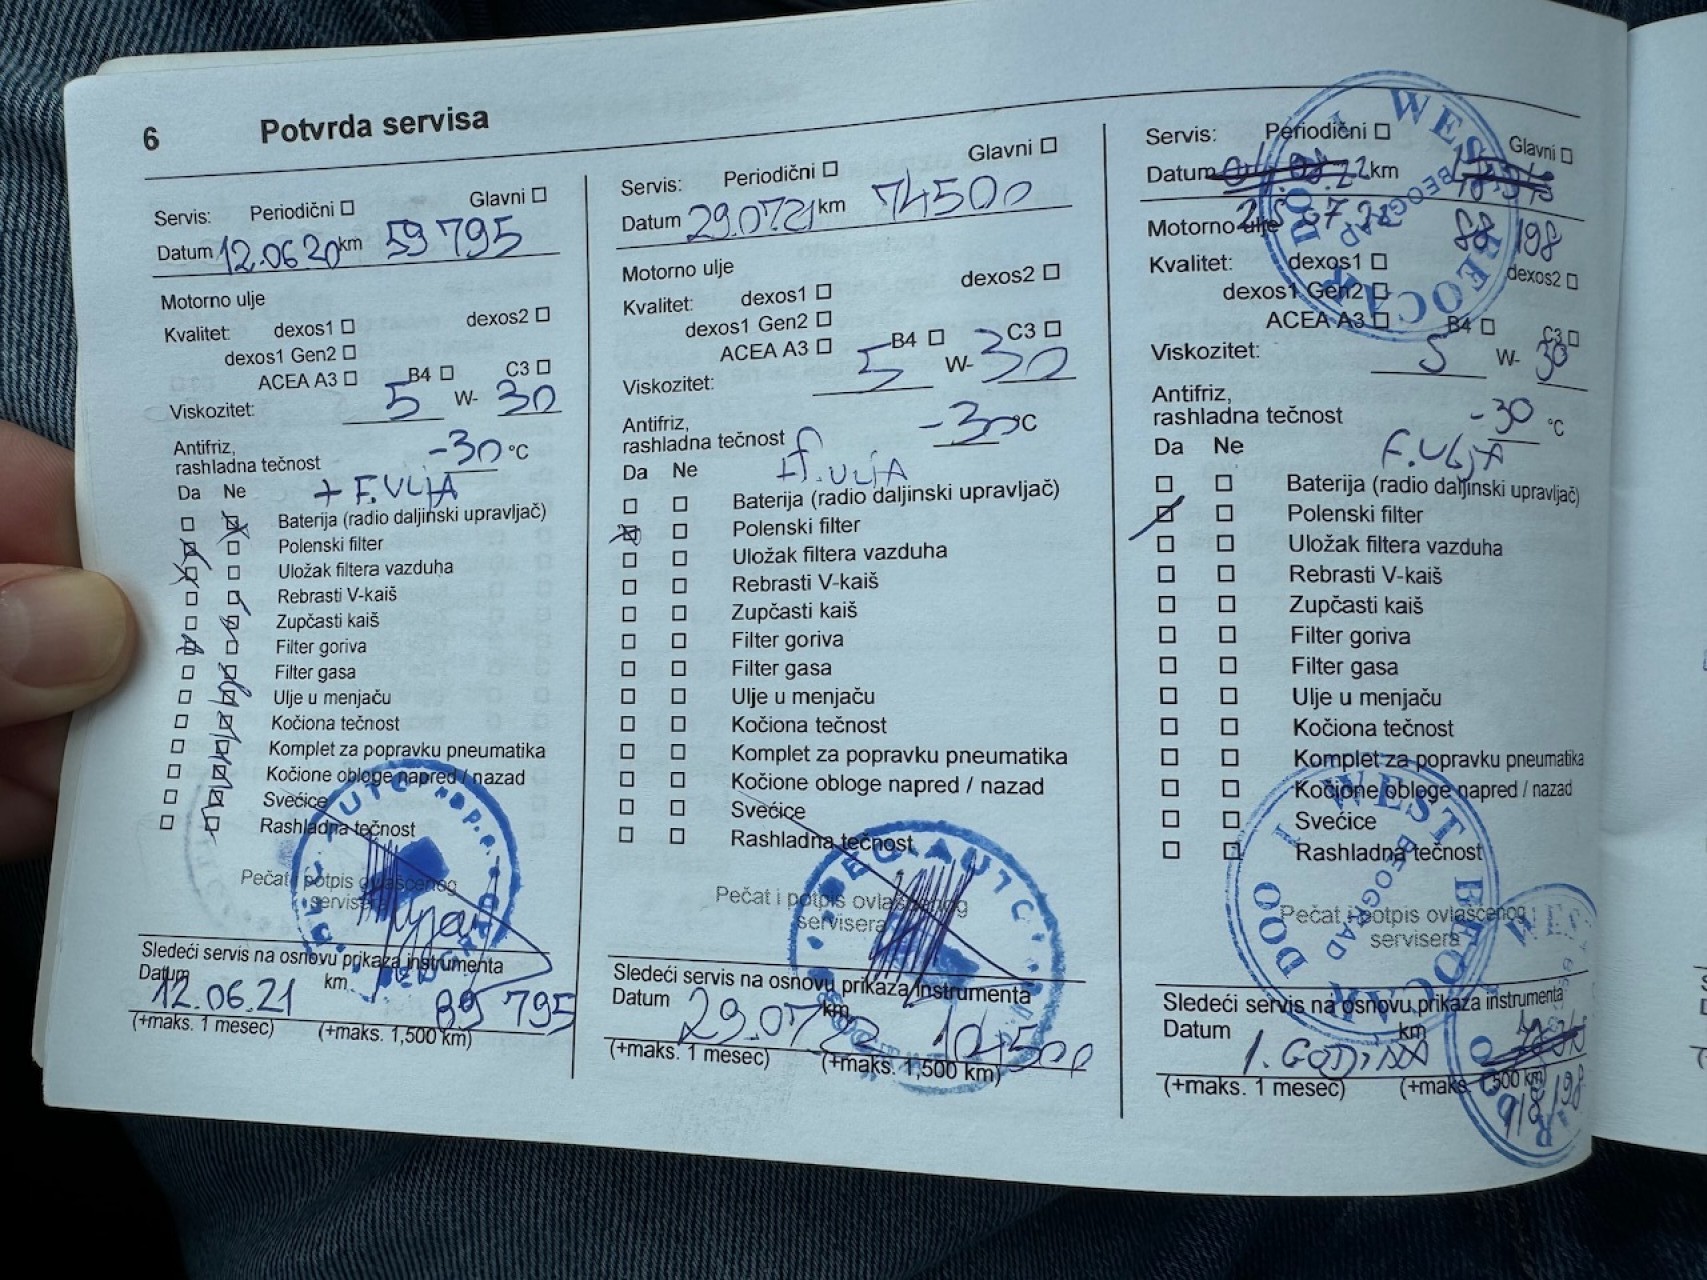 6 Potvrda servisa
Servis: Periodični Glavni
Datum 12.06.20 km 59795
Motorno ulje
Kvalitet: dexos1 dexos2
dexos1 Gen2
ACEA A3 B4 C3
Viskozitet: 5 W- 30
Antifriz,
rashladna tečnost -30 °C
Da Ne + F.ULJA
Baterija (radio daljinski upravljač)
Polenski filter
Uložak filtera vazduha
Rebrasti V-kaiš
Zupčasti kaiš
Filter goriva
Filter gasa
Ulje u menjaču
Kočiona tečnost
Komplet za popravku pneumatika
Kočione obloge napred / nazad
Svećice
Rashladna tečnost
Pečat i potpis ovlašćenog
servisera
AUTO
Sledeći servis na osnovu prikaza instrumenta
Datum km
12.06.21 89 795
(+maks. 1 mesec) (+maks. 1,500 km)
Servis: Periodični Glavni
Datum 29.07.21 km 74500
Motorno ulje
Kvalitet: dexos1 dexos2
dexos1 Gen2
ACEA A3 B4 C3
Viskozitet: 5 W- 30
Antifriz,
rashladna tečnost -30 °C
Da Ne +F.ULJA
Baterija (radio daljinski upravljač)
Polenski filter
Uložak filtera vazduha
Rebrasti V-kaiš
Zupčasti kaiš
Filter goriva
Filter gasa
Ulje u menjaču
Kočiona tečnost
Komplet za popravku pneumatika
Kočione obloge napred / nazad
Svećice
Rashladna tečnost
Pečat i potpis ovlašćenog
servisera
Sledeći servis na osnovu prikaza instrumenta
Datum 29.07.22 km 104500
(+maks. 1 mesec) (+maks. 1,500 km)
Servis: Periodični Glavni
Datum km
Motorno ulje 88 198
Kvalitet: dexos1 dexos2
dexos1 Gen2
ACEA A3 B4 C3
Viskozitet: 5 W- 30
Antifriz,
rashladna tečnost -30 °C
Da Ne F.ULJA
Baterija (radio daljinski upravljač)
Polenski filter
Uložak filtera vazduha
Rebrasti V-kaiš
Zupčasti kaiš
Filter goriva
Filter gasa
Ulje u menjaču
Kočiona tečnost
Komplet za popravku pneumatika
Kočione obloge napred / nazad
Svećice
Rashladna tečnost
Pečat i potpis ovlašćenog
servisera
I WEST BEOCAR DOO
BEOGRAD
Sledeći servis na osnovu prikaza instrumenta
Datum km
1. GODINA
(+maks. 1 mesec) (+maks. 500 km)